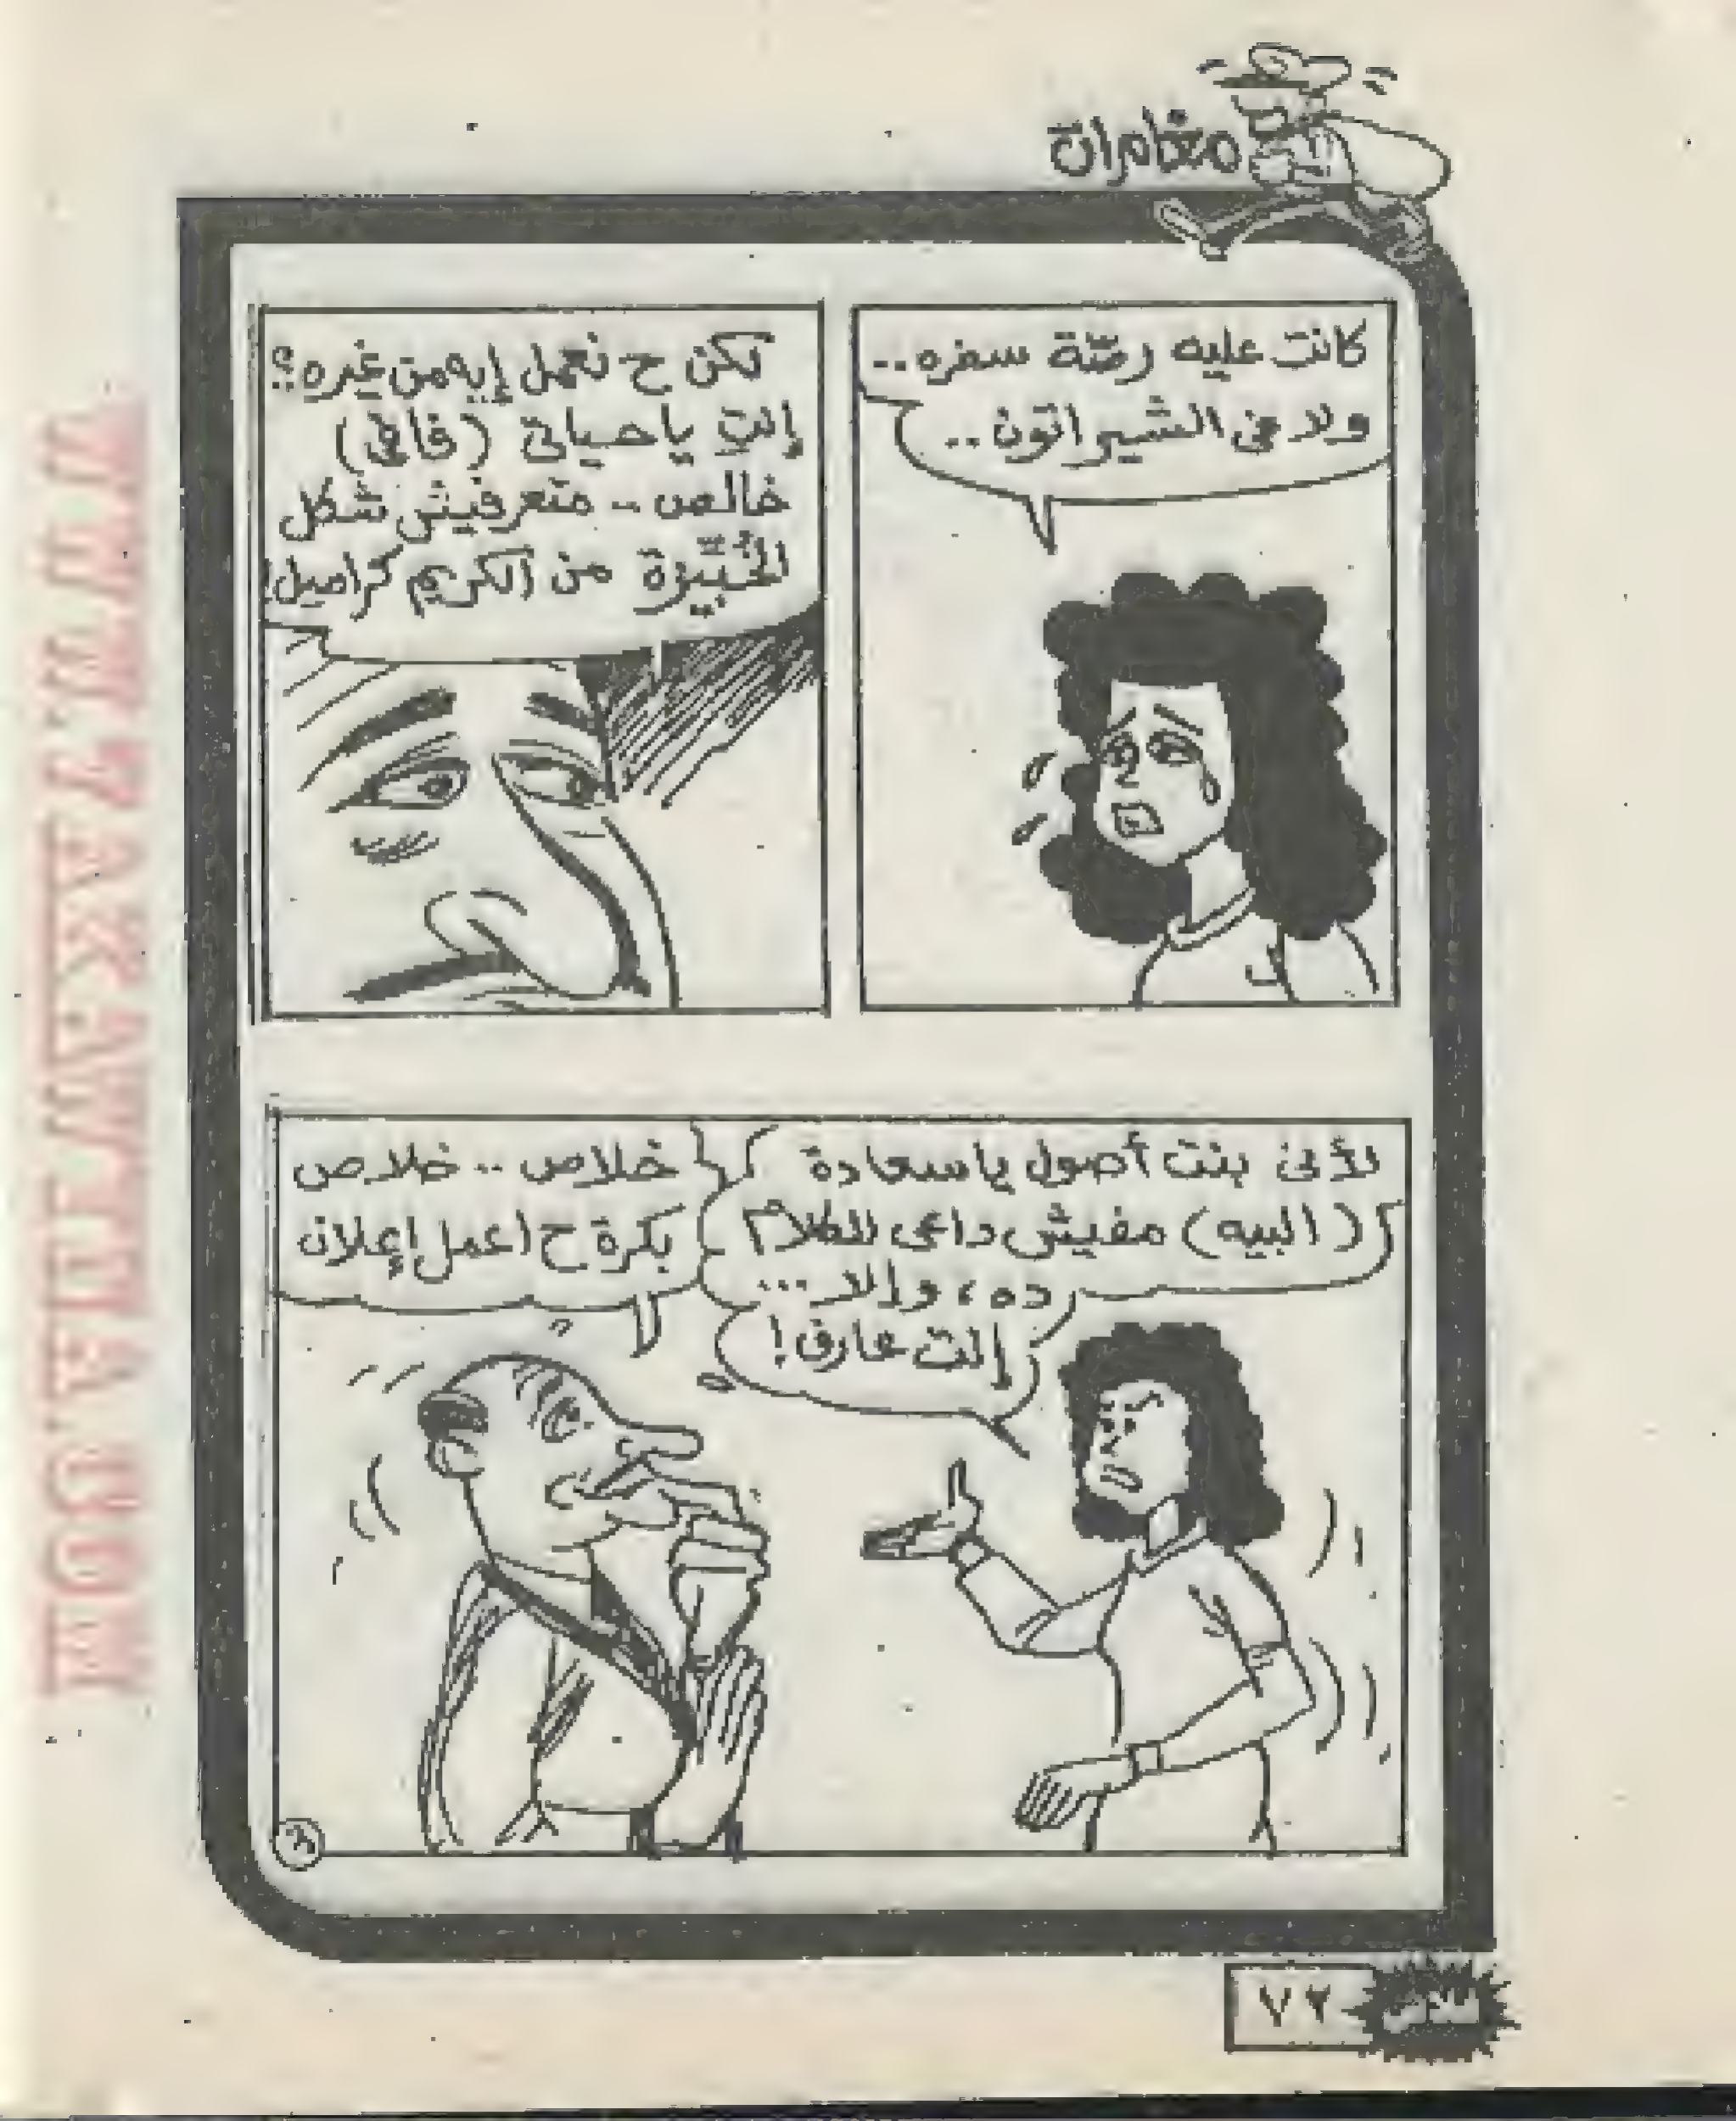 مغامرات
كانت عليه رصّة سفره..
ولا في الشيراتون..
لكن ح نعمل إيه من غيره؟
إنتِ يا حياتى (فافى)
خالص.. متعرفيش شكل
الخُبّيزة من الكريم كراميل!
لأنى بنت أصول يا سعادة
(البيه) مفيش داعى للكلام
ده، وإلا...
إنت عارف!
خلاص.. خلاص
بكرة ح اعمل إعلان
فلاش
٧٢
WWW.7AKAWEETNA.COM